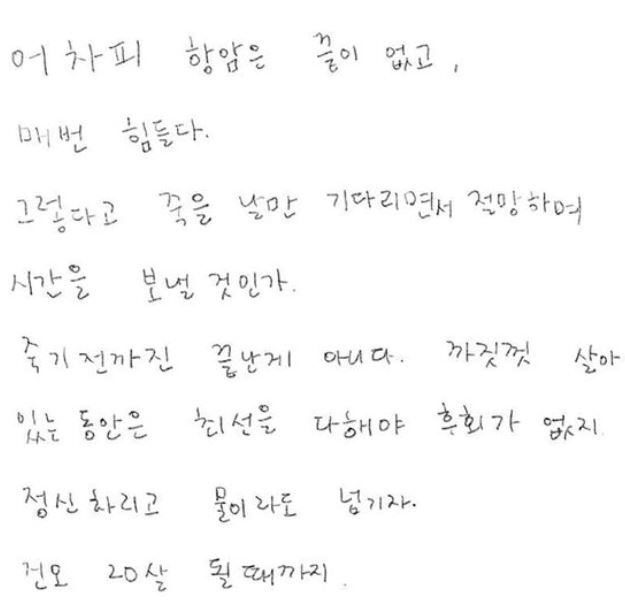 어차피 항암은 끝이 없고,
매번 힘들다.
그렇다고 죽을 날만 기다리면서 절망하며
시간을 보낼 것인가.
죽기전까진 끝난게 아니다. 까짓껏 살아
있는 동안은 최선을 다해야 후회가 없지
정신차리고 물이라도 넘기자.
건오 20살 될때까지.